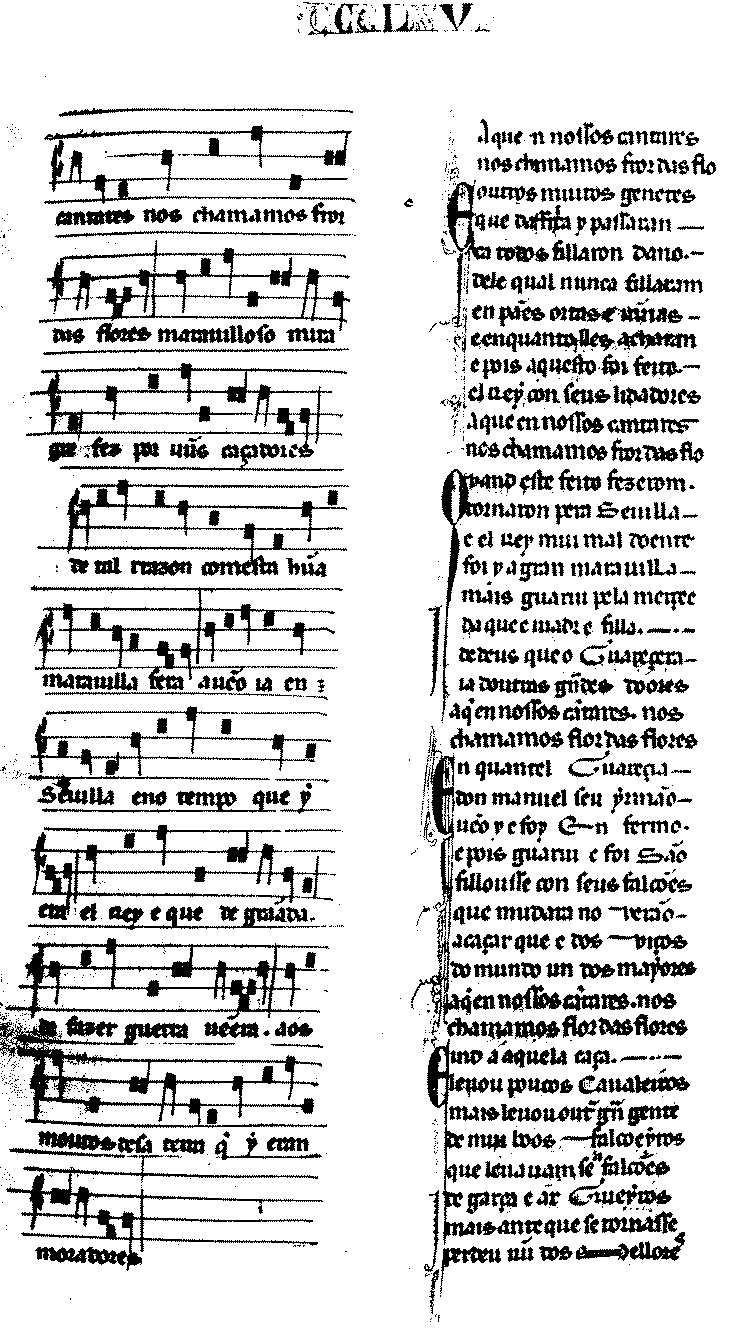 CCCLXV
cantares nos chamamos fror
das flores marauilloso mira
gre fez por uũs caçadores
de tal razon comesta hũa
marauilla fera auẽo ia en
Seuilla eno tempo que ẏ
era el Rey e que de graãda
de fazer guerra uẽera. aos
mouros desa terra q̇ ẏ eran
moradores
A que n nossos cantares
nos chamamos fror das flo
outros muitos generes
que dessa y passaran —
ca todos fillaron dano.—
dele qual nunca fillaram
en pães ortas e uinas —
e enquanto lles acharam
e pois aquesto foi feito.—
el Rey con seus lidadores
a que en nossos cantares
nos chamamos fror das flo
Quand este feito fezerom.
tornaron pera Seuilla—
e el Rey mui mal doente
foi y a gran marauilla—
mais guariu pela merçee
da que e madre filla.—.—
de deus que o Guareçera—
ia doutras gr̃des doores
aq̇ en nossos cãtares. nos
chamamos flor das flores
En quant el Guareçia—
don manuel seu yrmão—
uẽo y e foy En fermo.
e pois guariu e foi São
fillousse con seus falcões
que mudara no uerão—
a caçar que e dos uiços
do mundo un dos mayores
aq̇ en nossos cãtares. nos
chamamos flor das flores
E indo a aquela caça.—.—
leuou poucos Caualeiros
mais leuou outr̃ gr̃n gente
de mui boos falcoeyros
que leuauam seus falcões
de garça e ar Grueyros
mais ante que se tornasse
perdeu uũ dos dellores